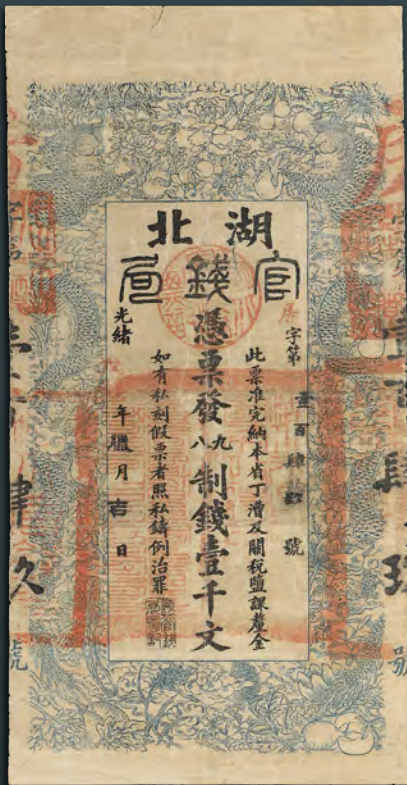 湖北
官錢局
字第壹百肆號
此票准完納本省丁漕及關税鹽課釐金
憑票發九八制錢壹千文
如有私刻假票者照私鑄例治罪
光緒年臘月吉日